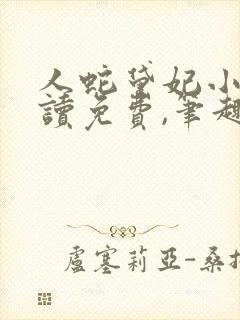 人蛇黛妃小
讀免費,筆趣
盧塞莉亞-桑托